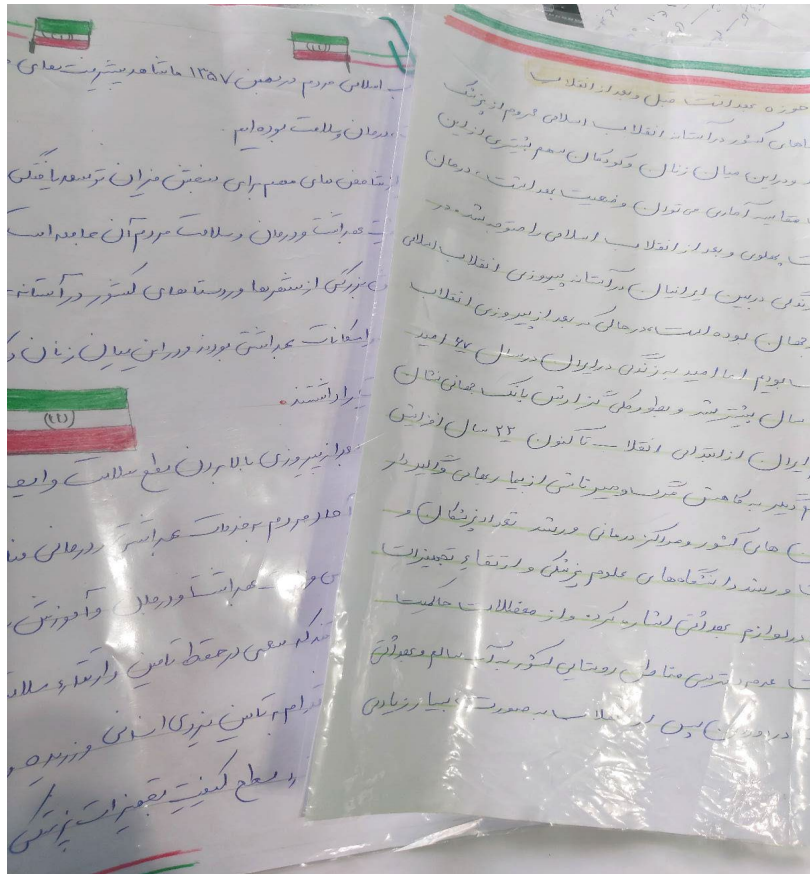 حوزه بهداشت قبل و بعد از انقلاب
های کشور در آستانه انقلاب اسلامی محروم از پزشک
و در این میان زنان و کودکان سهم بیشتری از این
مقایسه آماری می‌توان وضعیت بهداشت، درمان
پهلوی و بعد از انقلاب اسلامی را متوجه شد. در
زندگی در بین ایرانیان در آستانه پیروزی انقلاب اسلامی
جهان بوده است، در حالی که بعد از پیروزی انقلاب
بودیم اما امید به زندگی در ایران در سال ۶۷ امید
سال بیشتر شد و بطور کلی گزارش بانک جهانی نشان
ایران از ابتدای انقلاب تاکنون ۲۲ سال افزایش
به کاهش مرگ و میر ناشی از بیماریهای واگیر دار
های کشور و مراکز درمانی و رشد تعداد پزشکان و
و رشد دانشگاه‌های علوم پزشکی و ارتقاء تجهیزات
و لوازم بهداشتی اشاره کرد و از معضلات حاکمیت
عدم دسترسی مناطق روستایی کشور به آب سالم و بهداشتی
پس از به صورت بسیار زیادی
اسلامی مردم در بهمن ۱۳۵۷ ما شاهد پیشرفت های
درمان و سلامت بوده ایم
شاخص های مهم برای سنجش میزان توسعه یافتگی
بهداشت و درمان و سلامت مردم آن جامعه است
بزرگی از شهرها و روستاهای کشور در آستانه
امکانات بهداشتی بودند و در این میان زنان و
را داشتند.
بعد از پیروزی بالا بردن سطح سلامت و
آحاد مردم به خدمات بهداشتی و درمانی
وزارت بهداشت و درمان و آموزش
که سعی در حفظ تامین و ارتقاء سلامت
اقدام به تامین نیروی انسانی ورزیده و
سطح کیفیت تجهیزات پزشکی